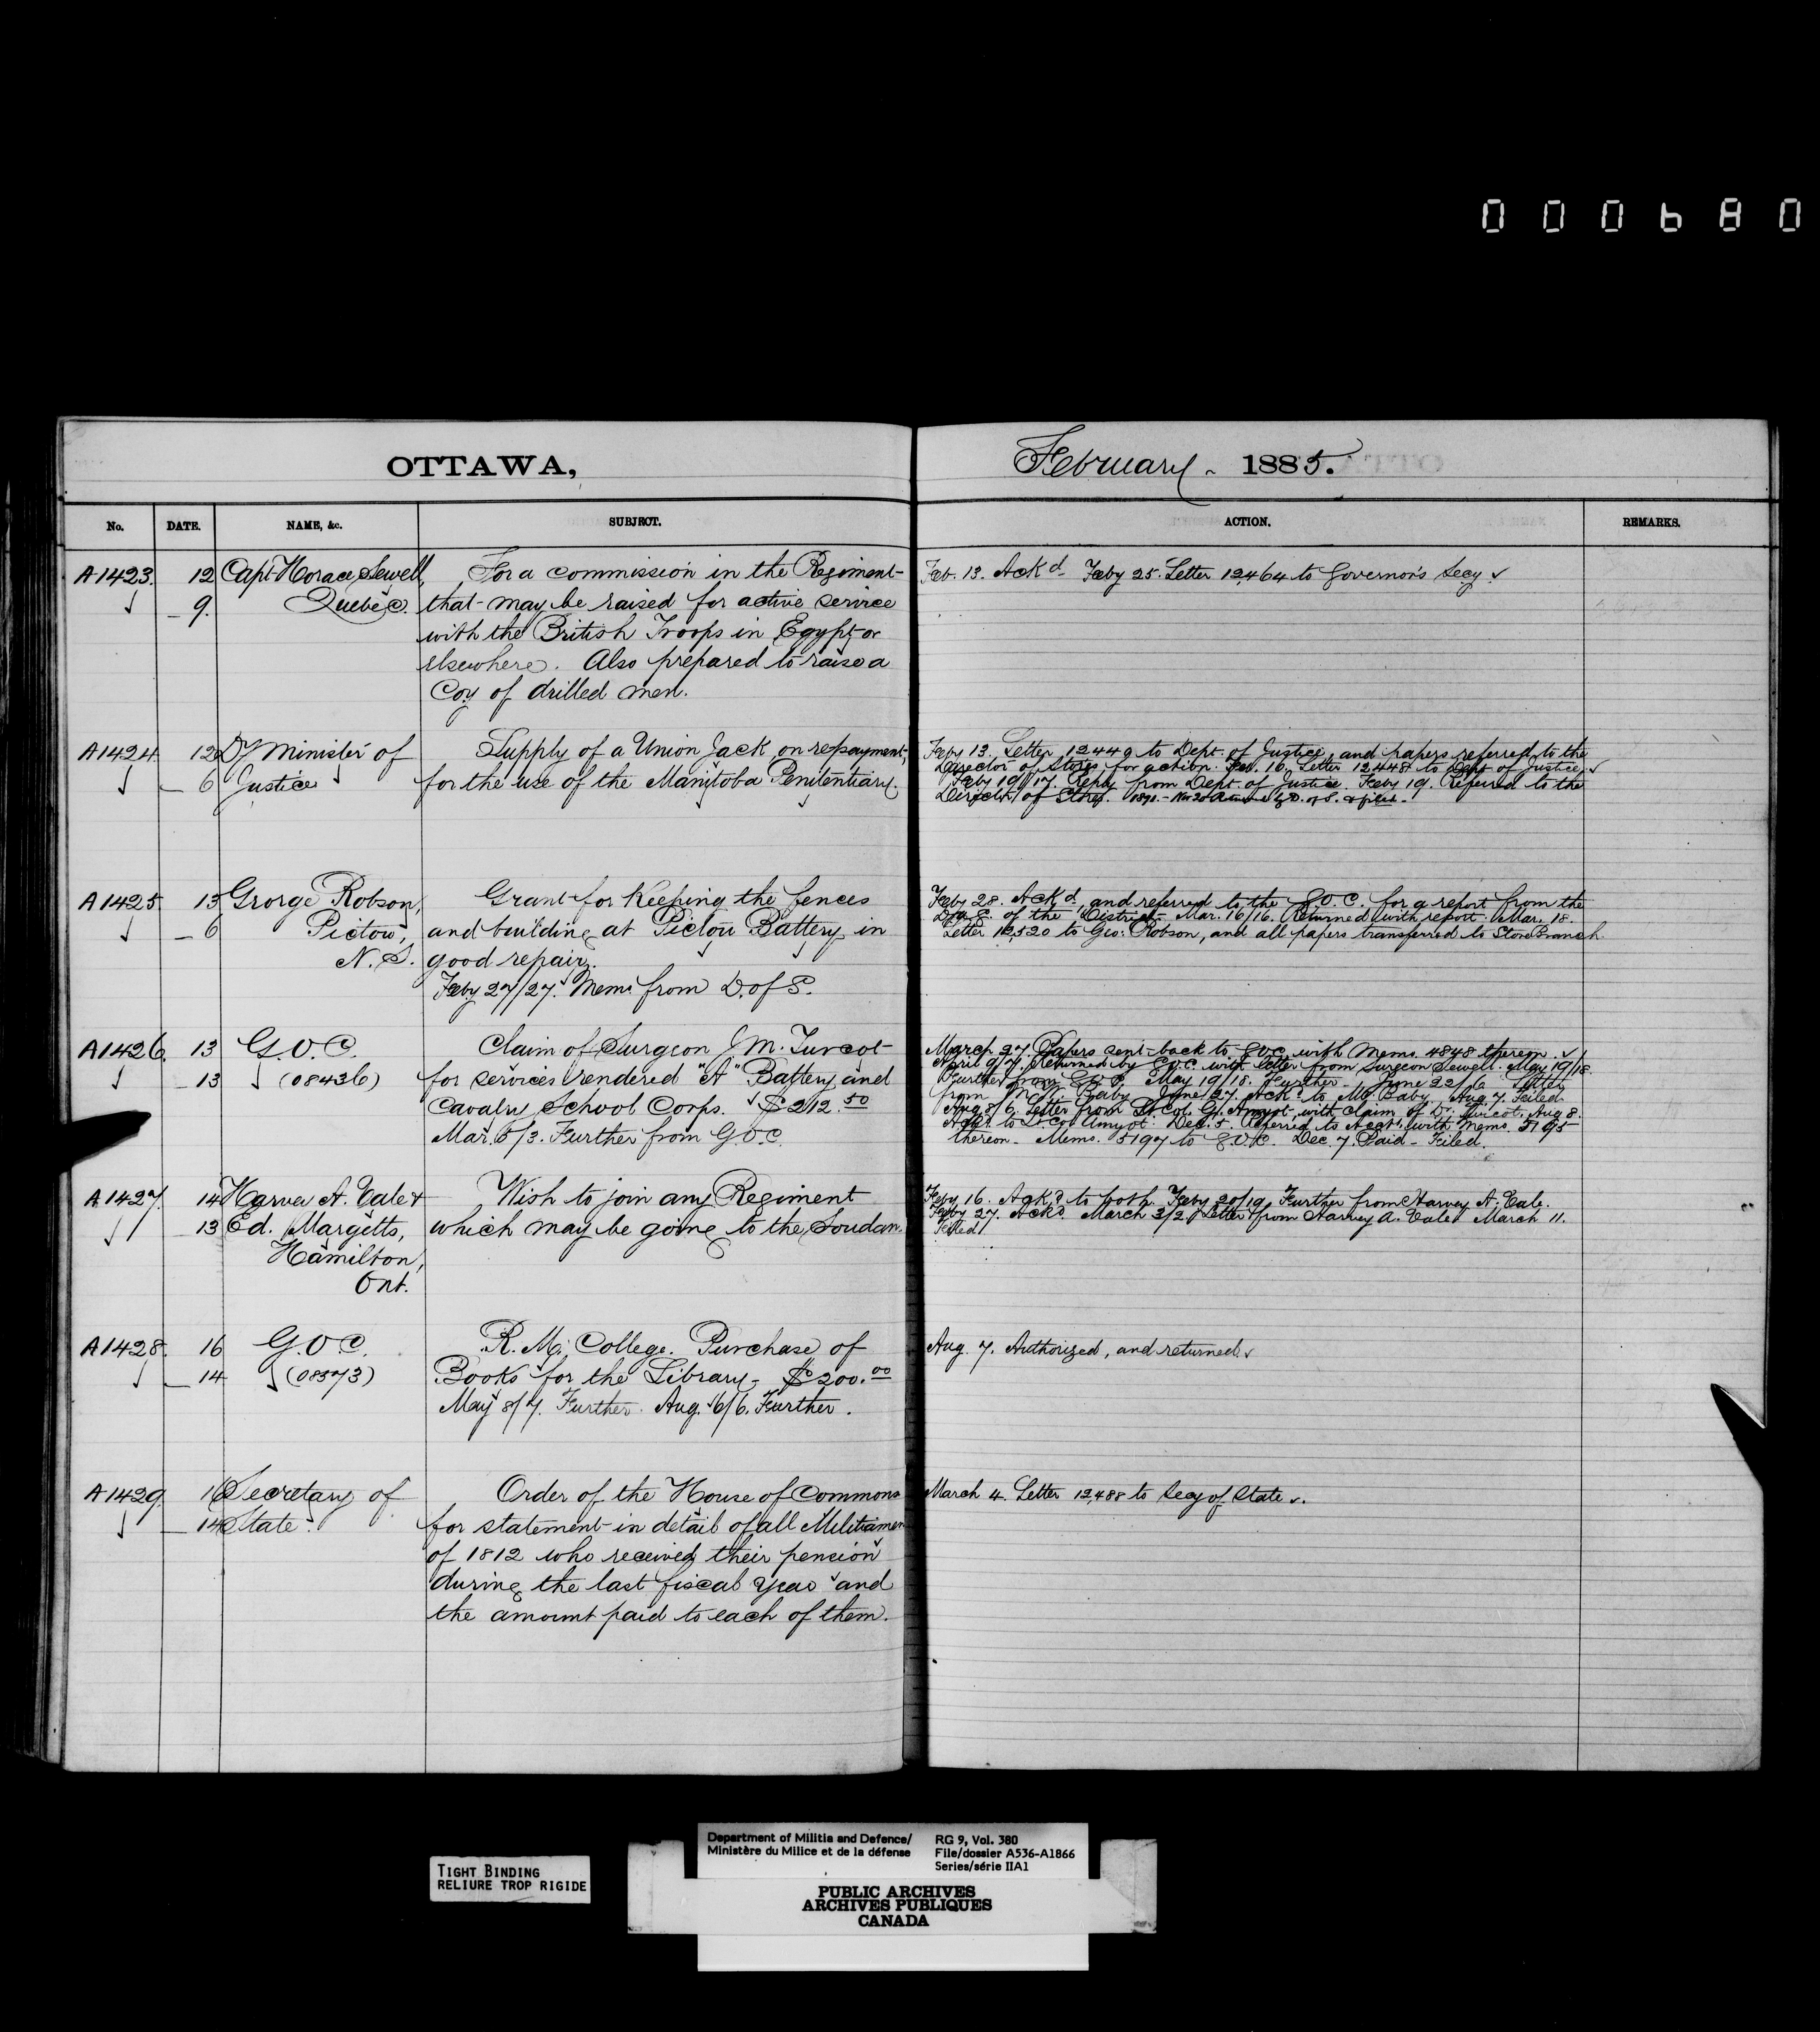 000680
OTTAWA,
February - 1885.
No.
DATE.
NAME, &c.
SUBJECT.
ACTION.
REMARKS.
A1423. 12 Capt. Horace Sewell, For a commission in the Regiment
9. Quebec. that may be raised for active service
with the British Troops in Egypt or
elsewhere. Also prepared to raise a
Coy of drilled men.
Feb. 13. Ack'd. Feby 25. Letter 12,464 to Governor's Secy
A1424. 12 Dy Minister of Supply of a Union Jack on repayment,
6 Justice for the use of the Manitoba Penitentiary.
Feby 13. Letter 12449 to Dept. of Justice, and papers referred to the
Director of Stores for action. Feb. 16. Letter 12,448 to Dept of Justice
Feby 19/17. Reply from Dept. of Justice. Feby 19. Referred to the
Director of Stores. 1891. - Nov 20 by D. of S. & filed -
A1425. 13 George Robson, Grant for keeping the fences
6 Pictou, and building at Pictou Battery in
N.S. good repair.
Feby 27/27. Memo from D. of S.
Feby 28. Ack'd, and referred to the G.O.C. for a report from the
of the District. Mar. 16/16. Returned with report. Mar. 18.
Letter 12,520 to Geo: Robson, and all papers transferred to Store Branch.
A1426. 13 G.O.C. Claim of Surgeon J. M. Turcot
13 (08436) for services rendered "A" Battery and
Cavalry School Corps. $212.50
Mar. 6/3. Further from G.O.C.
March 27. Papers sent back to G.O.C. with Memo. 4848 thereon.
April 9/7. Returned by G.O.C. with letter from Surgeon Sewell. May 19/18
Further from G.O.C. May 19/18. Further - June 22/ Letter
from Baby June 27. Ack'd to Mr. Baby. Aug. 7. Filed.
Aug 8/6. Letter from Lt. Col. G. Amyot with claim of Dr. Turcot. Aug 8.
Ack'd to Lt. Col Amyot. Dec. 5. Referred to Acct. with Memo. 5195
thereon - Memo. 5197 to G.O.C. Dec. 7. Paid - Filed.
A1427. 14 Harvey A. Vale & Wish to join any Regiment
13 Ed. Margetts, which may be going to the Soudan.
Hamilton,
Ont.
Feby 16. Ack'd to both. Feby 20/19. Further from Harvey A. Vale.
Feby 27. Ack'd. March 3/2. Letter from Harvey A. Vale. March 11.
Filed.
A1428. 16 G.O.C. R. M. College. Purchase of
14 (08373) Books for the Library - $200.00
May 8/7. Further. Aug. 6/6. Further.
Aug. 7. Authorized, and returned.
A1429. 16 Secretary of Order of the House of Commons
14 State. for statement in detail of all Militiamen
of 1812 who received their pension
during the last fiscal year and
the amount paid to each of them.
March 4. Letter 12,488 to Secy of State.
TIGHT BINDING
RELIURE TROP RIGIDE
Department of Militia and Defence/
Ministère du Milice et de la défense
RG 9, Vol. 380
File/dossier A536-A1866
Series/série IIA1
PUBLIC ARCHIVES
ARCHIVES PUBLIQUES
CANADA